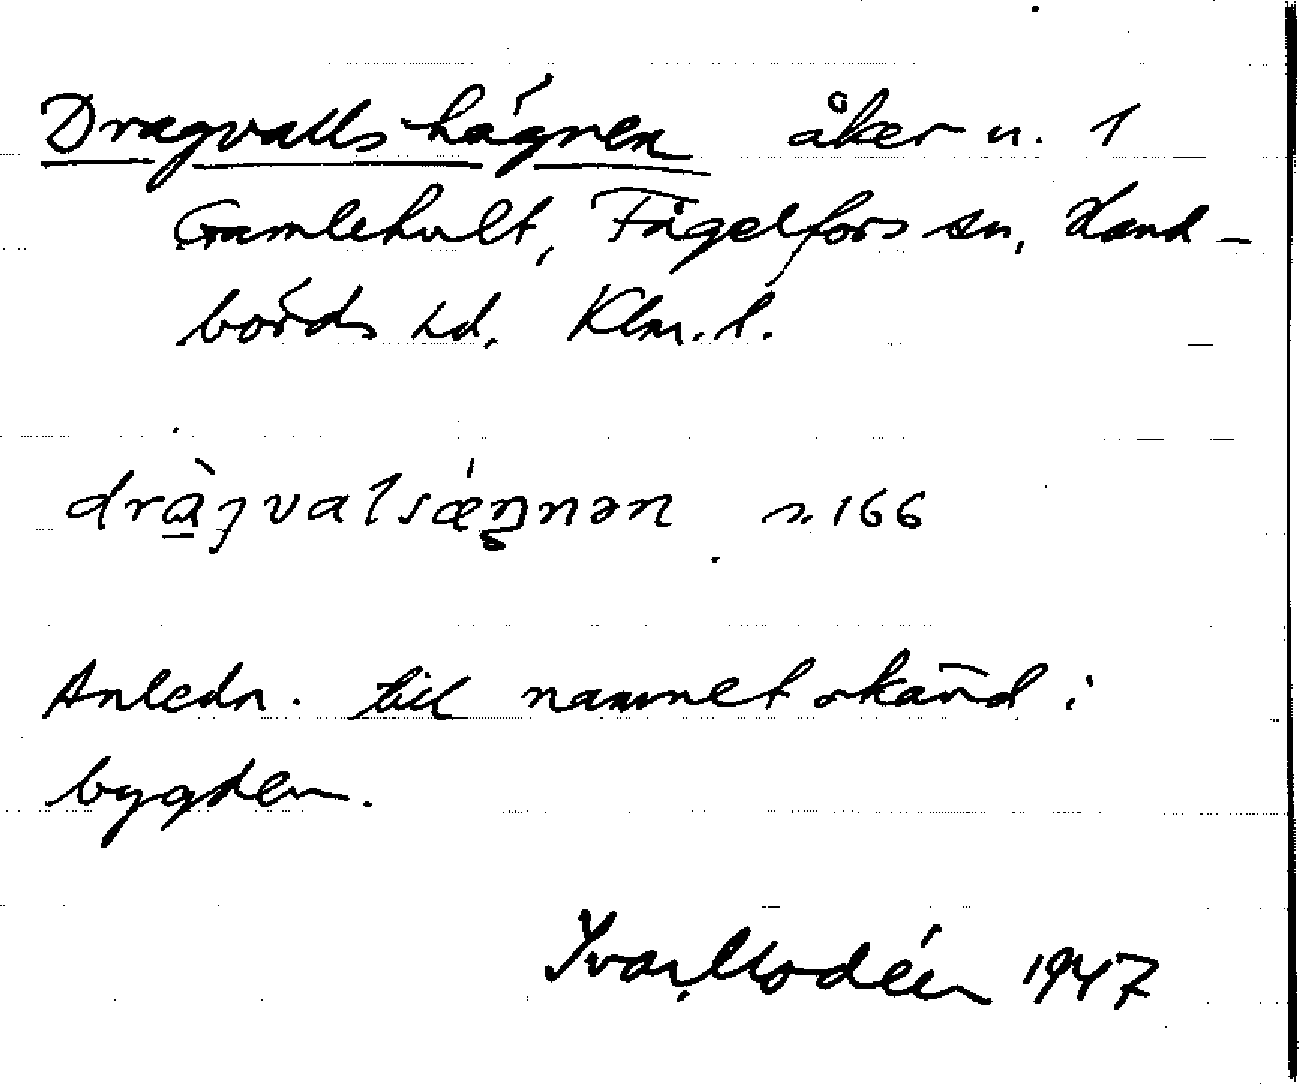 Dragvallshägnen åker u. 1
Gamlehult, Fågelfors sn, Hand-
börds hd. Klm. l.
s. 166
Anledn. till namnet okänd i
bygden.
Ivar Modéer 1947